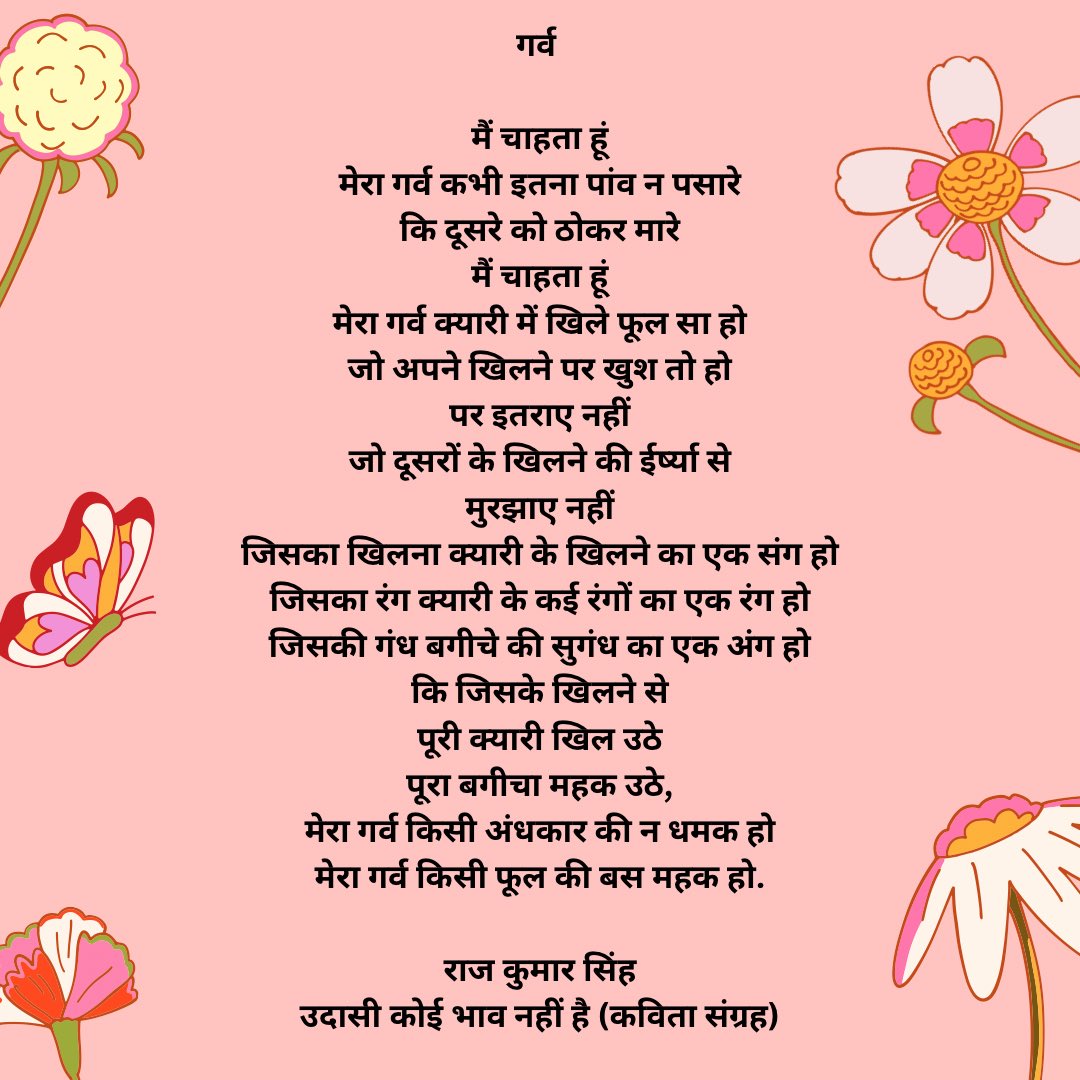 गर्व
मैं चाहता हूं
मेरा गर्व कभी इतना पांव न पसारे
कि दूसरे को ठोकर मारे
मैं चाहता हूं
मेरा गर्व क्यारी में खिले फूल सा हो
जो अपने खिलने पर खुश तो हो
पर इतराए नहीं
जो दूसरों के खिलने की ईर्ष्या से
मुरझाए नहीं
जिसका खिलना क्यारी के खिलने का एक संग हो
जिसका रंग क्यारी के कई रंगों का एक रंग हो
जिसकी गंध बगीचे की सुगंध का एक अंग हो
कि जिसके खिलने से
पूरी क्यारी खिल उठे
पूरा बगीचा महक उठे,
मेरा गर्व किसी अंधकार की न धमक हो
मेरा गर्व किसी फूल की बस महक हो.
राज कुमार सिंह
उदासी कोई भाव नहीं है (कविता संग्रह)